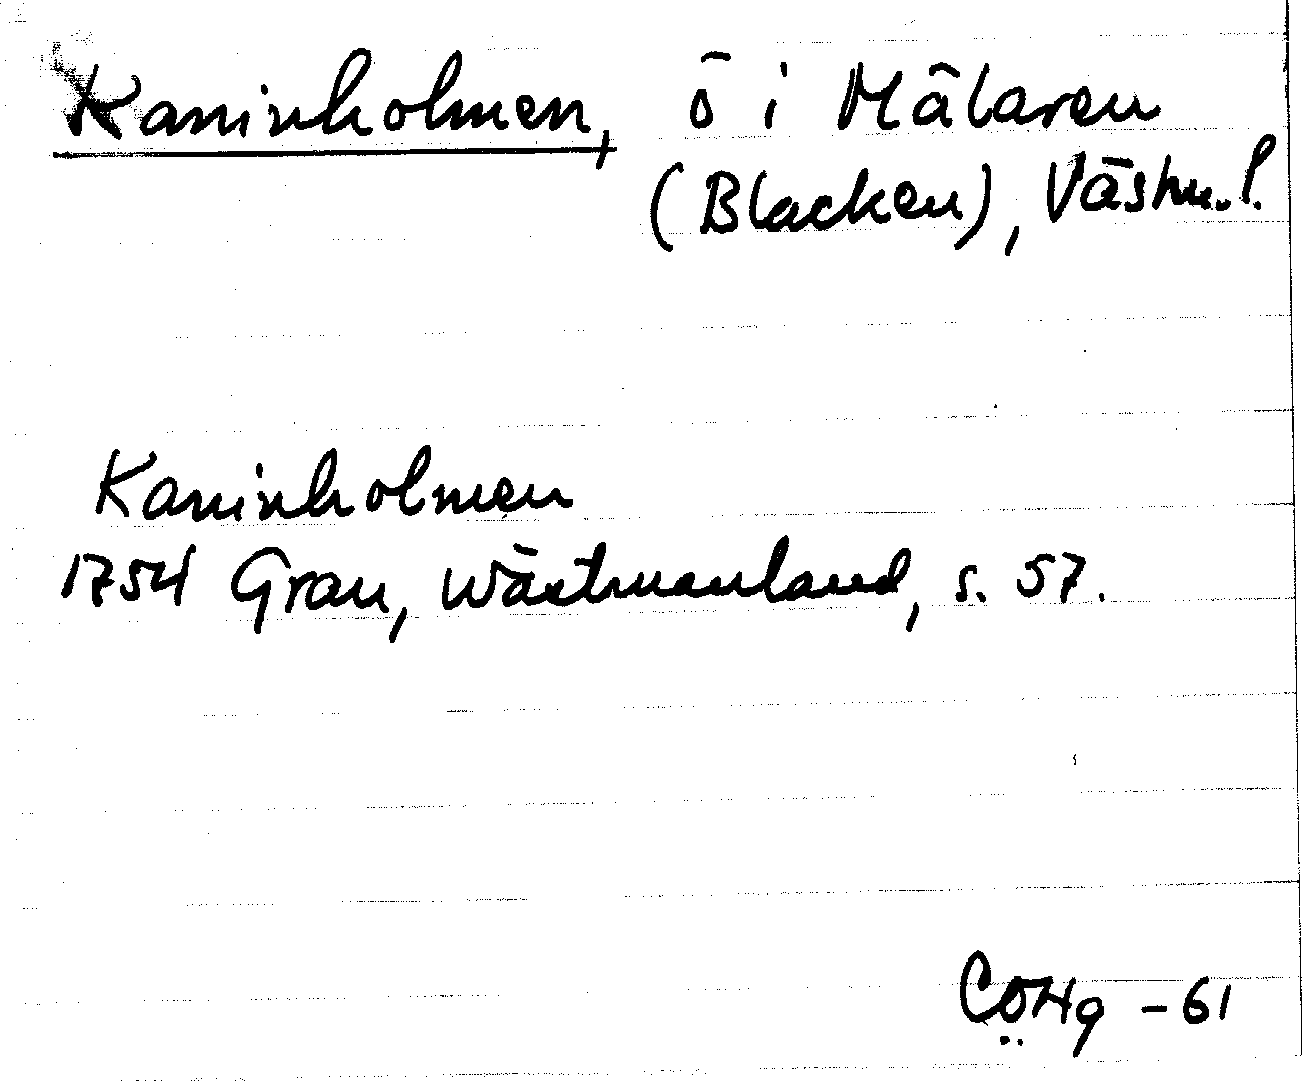 Kaninholmen, ö i Mälaren
(Blacken), Västm.l.
Kaninholmen
1754 Grau, Wästmanland, s. 57.
CÖHg -61